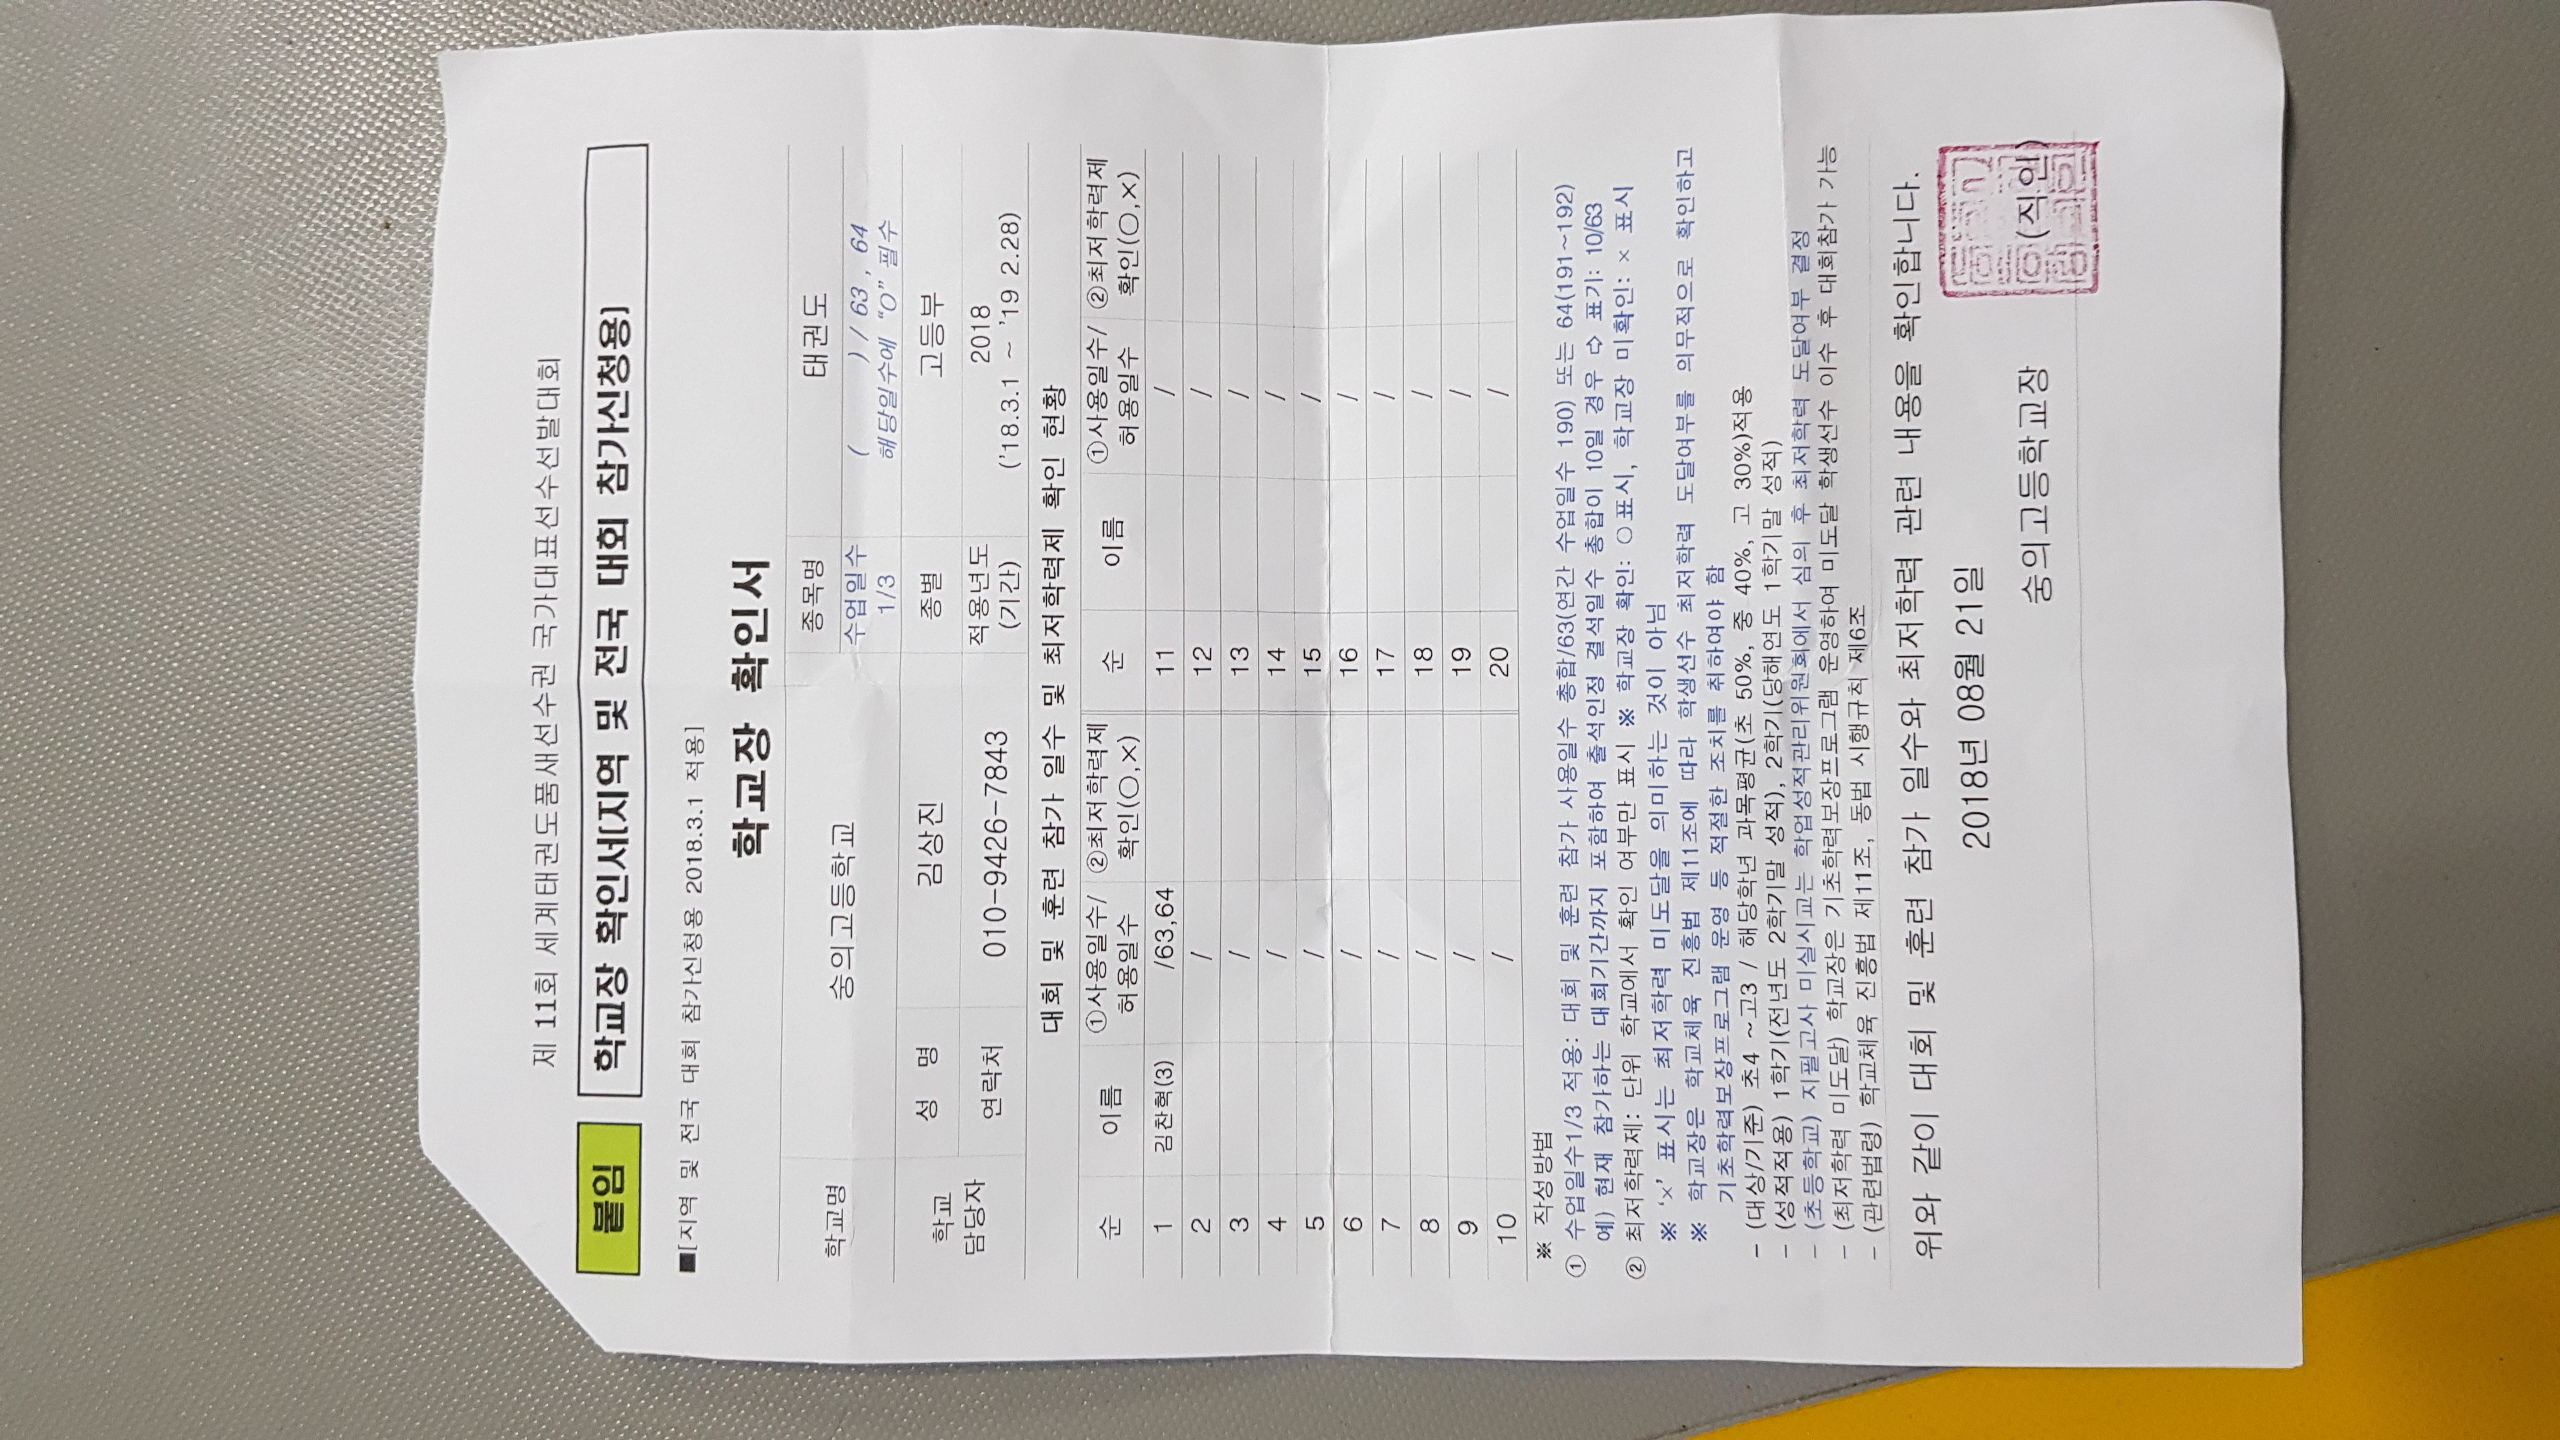 제 11회 세계태권도품새선수권 국가대표선수선발대회
붙임 학교장 확인서[지역 및 전국 대회 참가신청용)
■[지역 및 전국 대회 참가신청용 2018.3.1 적용]
학교장 확인서
학교명 숭의고등학교 종목명 태권도
수업일수 1/3 ( ) / 63, 64
해당일수에 “O” 필수
학교 담당자 성 명 김상진 종별 고등부
연락처 010-9426-7843 적용년도 (기간) 2018
('18.3.1 ~ '19 2.28)
대회 및 훈련 참가 일수 및 최저학력제 확인 현황
순 이름 ①사용일수/허용일수 ②최저학력제 확인(○,×) 순 이름 ①사용일수/허용일수 ②최저학력제 확인(○,×)
1 김찬혁(3) /63,64 11 /
2 / 12 /
3 / 13 /
4 / 14 /
5 / 15 /
6 / 16 /
7 / 17 /
8 / 18 /
9 / 19 /
10 / 20 /
※ 작성방법
① 수업일수1/3 적용: 대회 및 훈련 참가 사용일수 총합/63(연간 수업일수 190) 또는 64(191~192)
예) 현재 참가하는 대회기간까지 포함하여 출석인정 결석일수 총합이 10일 경우 ⇨ 표기: 10/63
② 최저학력제: 단위 학교에서 확인 여부만 표시 ※ 학교장 확인: ○표시, 학교장 미확인: × 표시
※ ‘×’ 표시는 최저학력 미도달을 의미하는 것이 아님
※ 학교장은 학교체육 진흥법 제11조에 따라 학생선수 최저학력 도달여부를 의무적으로 확인하고
기초학력보장프로그램 운영 등 적절한 조치를 취하여야 함
- (대상/기준) 초4 ~고3 / 해당학년 과목평균(초 50%, 중 40%, 고 30%)적용
- (성적적용) 1학기(전년도 2학기말 성적), 2학기(당해연도 1학기말 성적)
- (초등학교) 지필고사 미실시교는 학업성적관리위원회에서 심의 후 최저학력 도달여부 결정
- (최저학력 미도달) 학교장은 기초학력보장프로그램 운영하여 미도달 학생선수 이수 후 대회참가 가능
- (관련법령) 학교체육 진흥법 제11조, 동법 시행규칙 제6조
위와 같이 대회 및 훈련 참가 일수와 최저학력 관련 내용을 확인합니다.
2018년 08월 21일
숭의고등학교장 (직인)